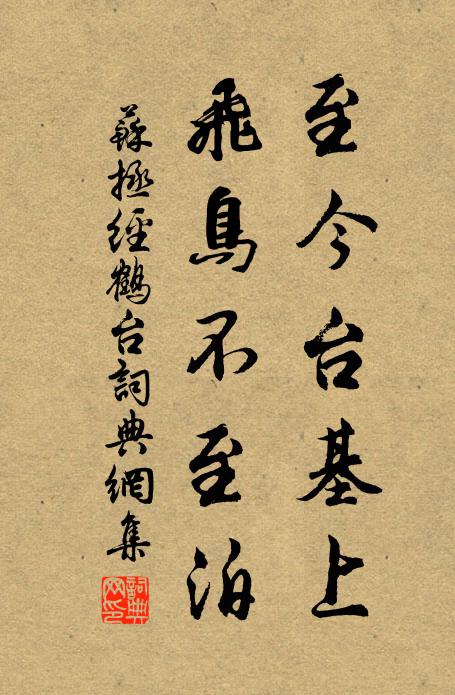 至今台基上
飛鳥不至泊
蘇拯經鶴台詞典網集
詞典網印